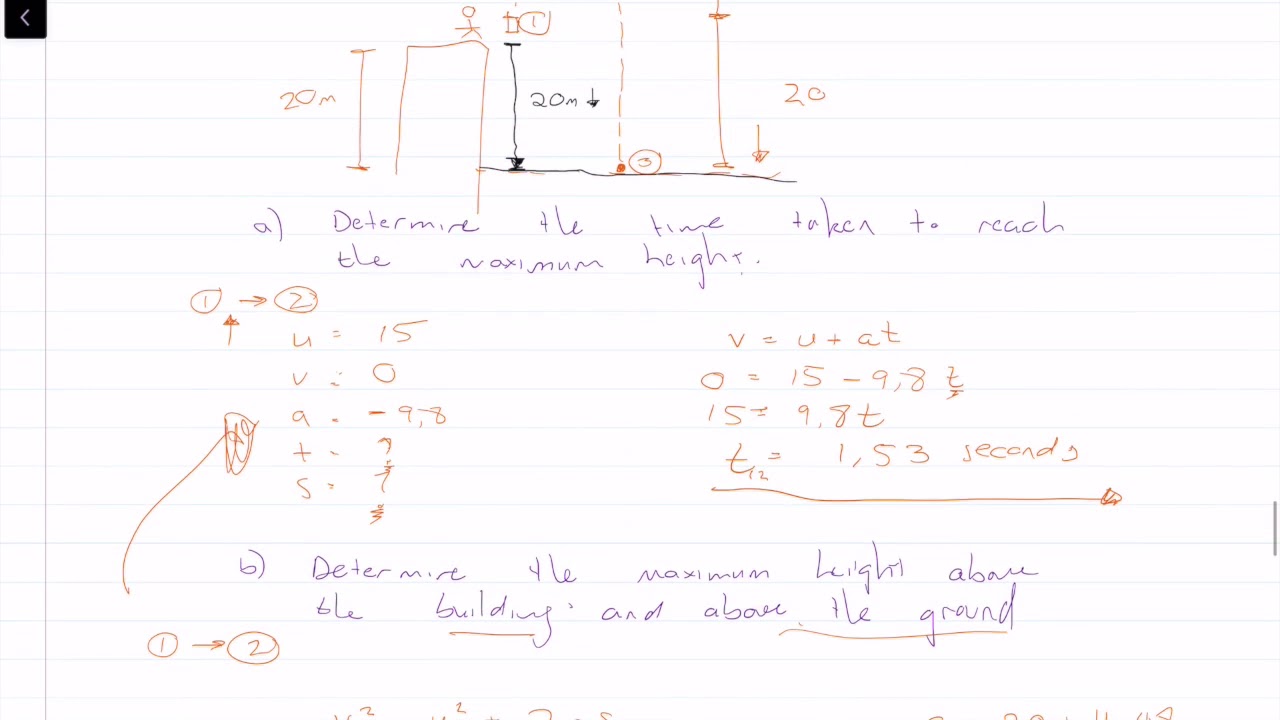 ①
20m
20m ↓
20
③
a) Determine the time taken to reach
the maximum height.
① → ②
u = 15
v = 0
a = -9,8
t = ?
s = ?
v = u + at
0 = 15 - 9,8 t
15 = 9,8t
t₁₂ = 1,53 seconds
b) Determine the maximum height above
the building and above the ground
① → ②